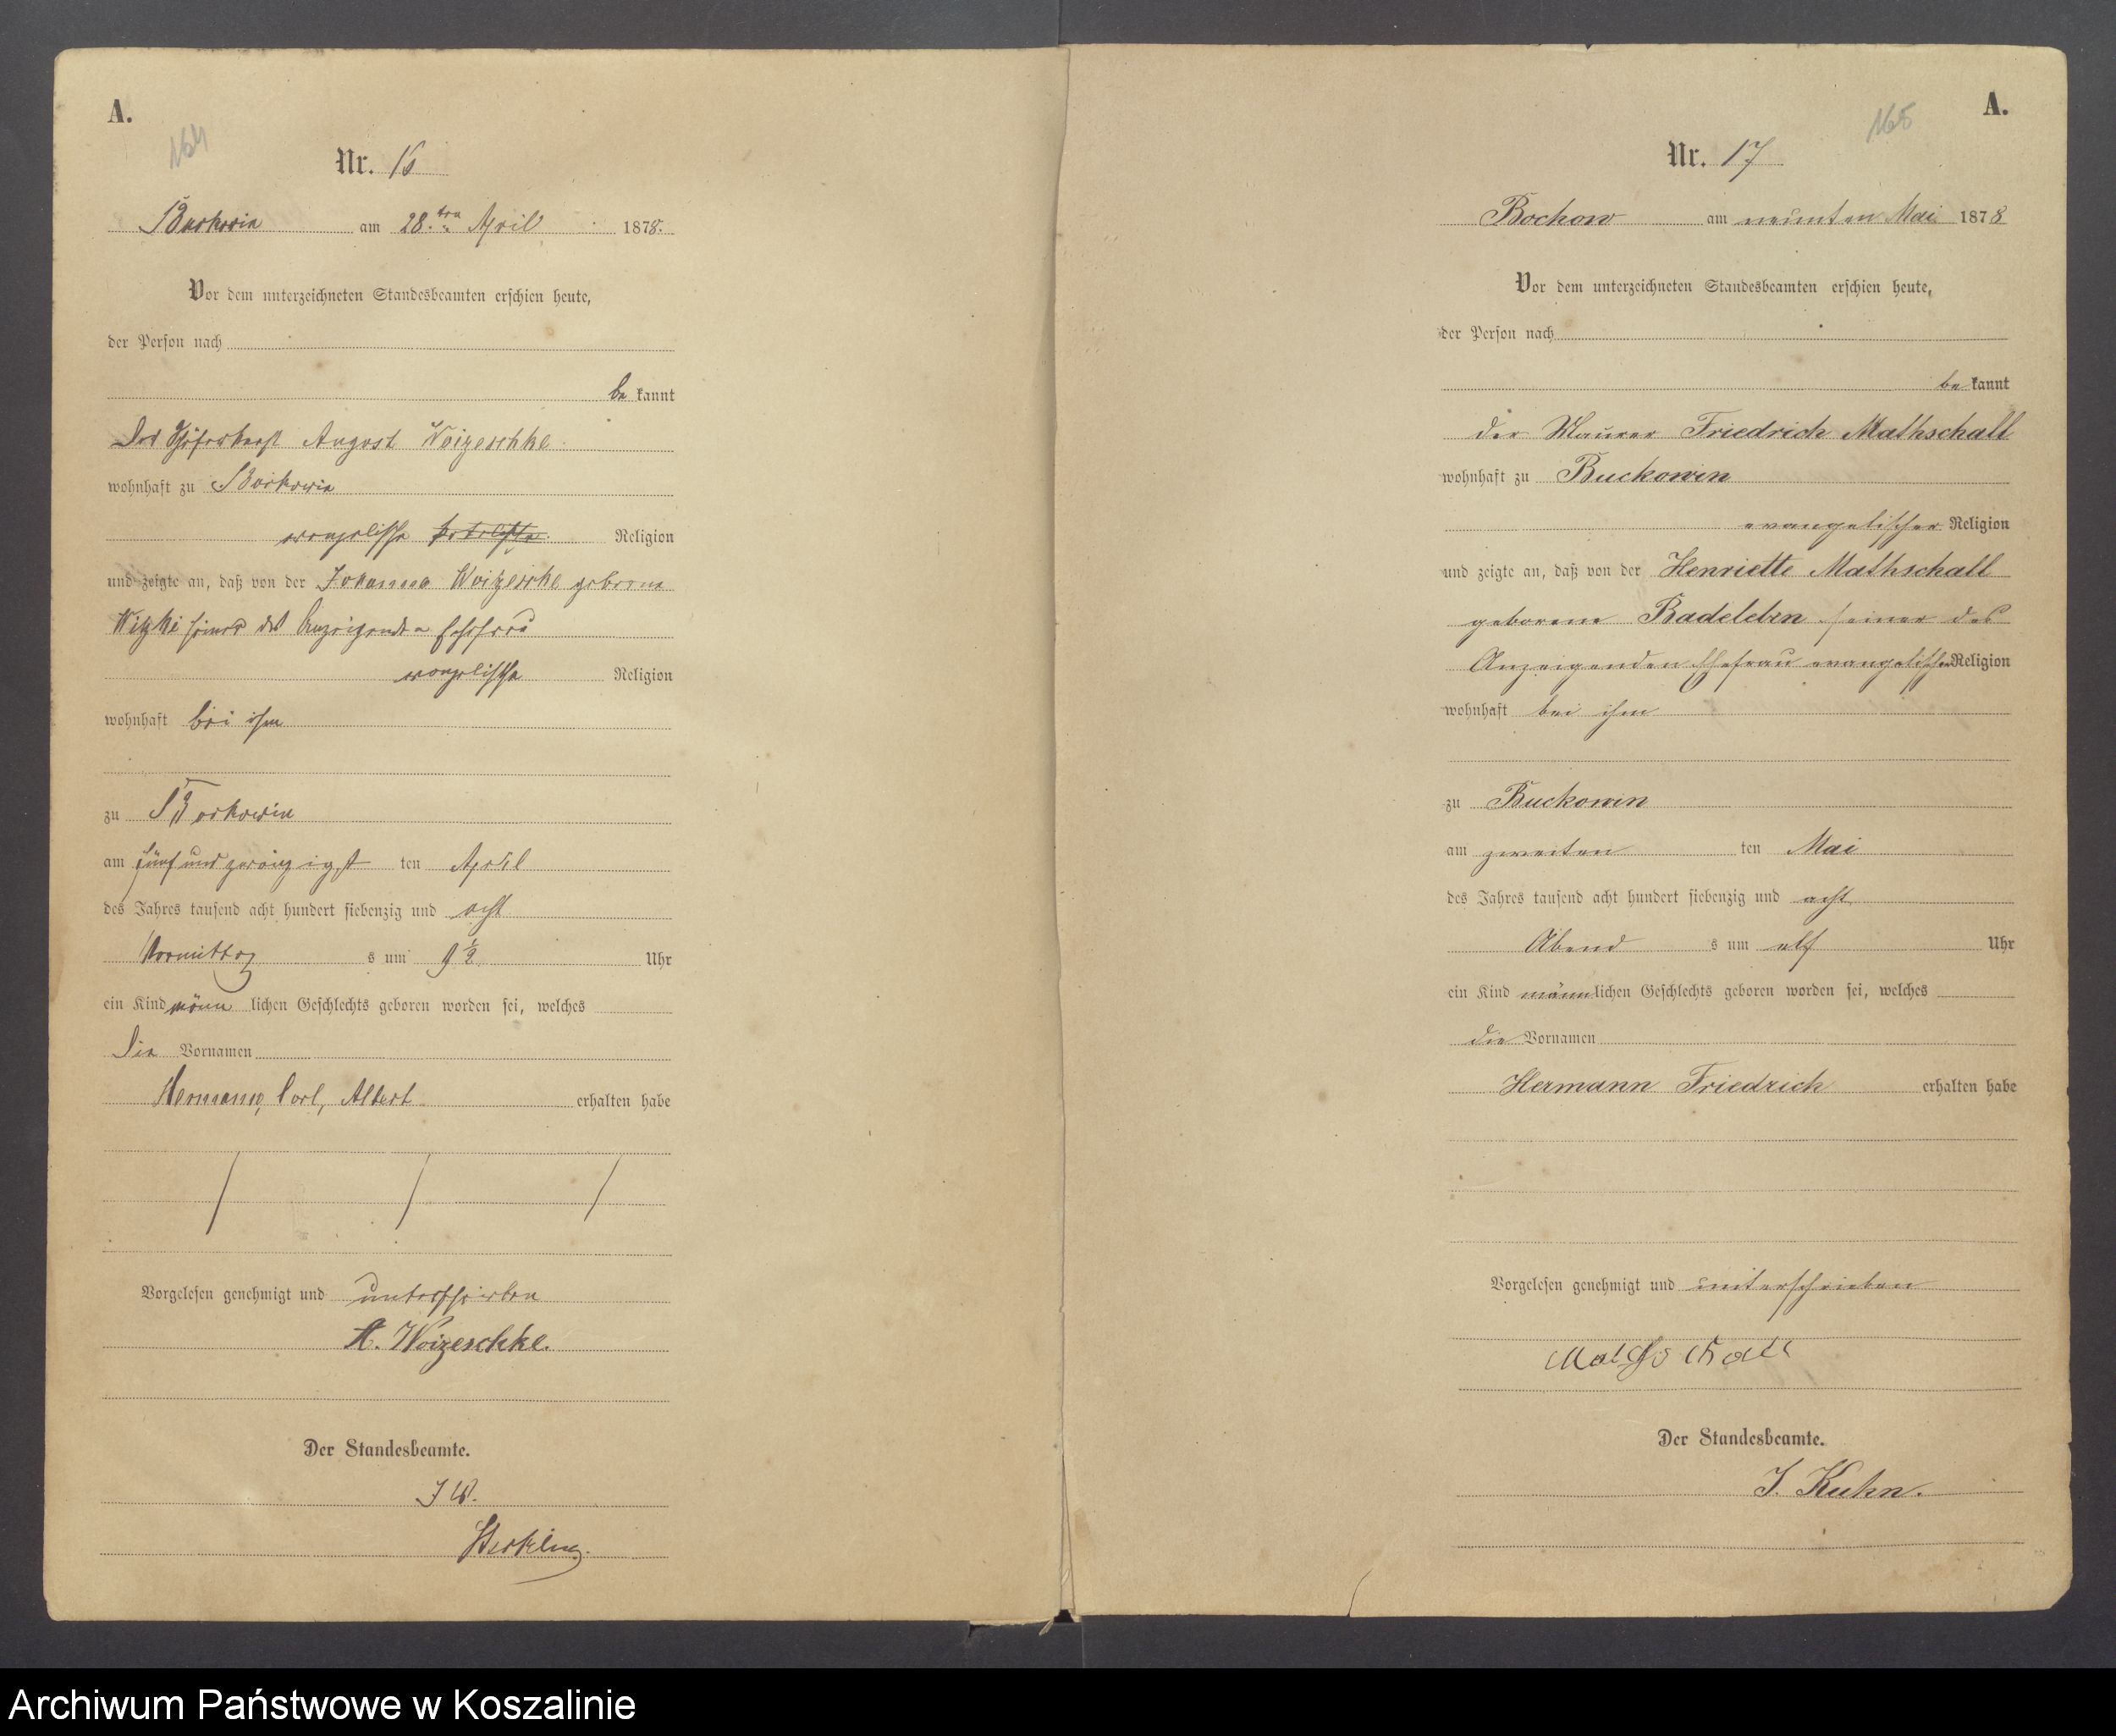 A.
164
Nr. 16
Buckowin am 28.ten April 1878.
Vor dem unterzeichneten Standesbeamten erschien heute,
der Person nach
be kannt
Der August Woizeschke
wohnhaft zu Buckowin
evangelische katolische Religion
und zeigte an, daß von der Johanna Woizeschke geborene
Witzki seiner des Anzeigenden Ehefrau
evangelische Religion
wohnhaft bei ihm
zu Buckowin
am fünf und zwanzigst ten April
des Jahres tausend acht hundert siebenzig und acht
Vormittag s um 9 1/2 Uhr
ein Kind männ lichen Geschlechts geboren worden sei, welches
die Vornamen
Hermann, Carl, Albert erhalten habe
Vorgelesen genehmigt und unterschrieben
A. Woizeschke.
Der Standesbeamte.
I. V.
A.
165
Nr. 17
Bochow am neunten Mai 1878
Vor dem unterzeichneten Standesbeamten erschien heute,
der Person nach
be kannt
der Maurer Friedrich Mathschall
wohnhaft zu Buckowin
evangelischer Religion
und zeigte an, daß von der Henriette Mathschall
geborene Badeleben seiner des
Anzeigenden Ehefrau evangelischer Religion
wohnhaft bei ihm
zu Buckowin
am zweiten ten Mai
des Jahres tausend acht hundert siebenzig und acht
Abend s um elf Uhr
ein Kind männlichen Geschlechts geboren worden sei, welches
die Vornamen
Hermann Friedrich erhalten habe
Vorgelesen genehmigt und unterschrieben
Der Standesbeamte.
J. Kuhn.
Archiwum Państwowe w Koszalinie